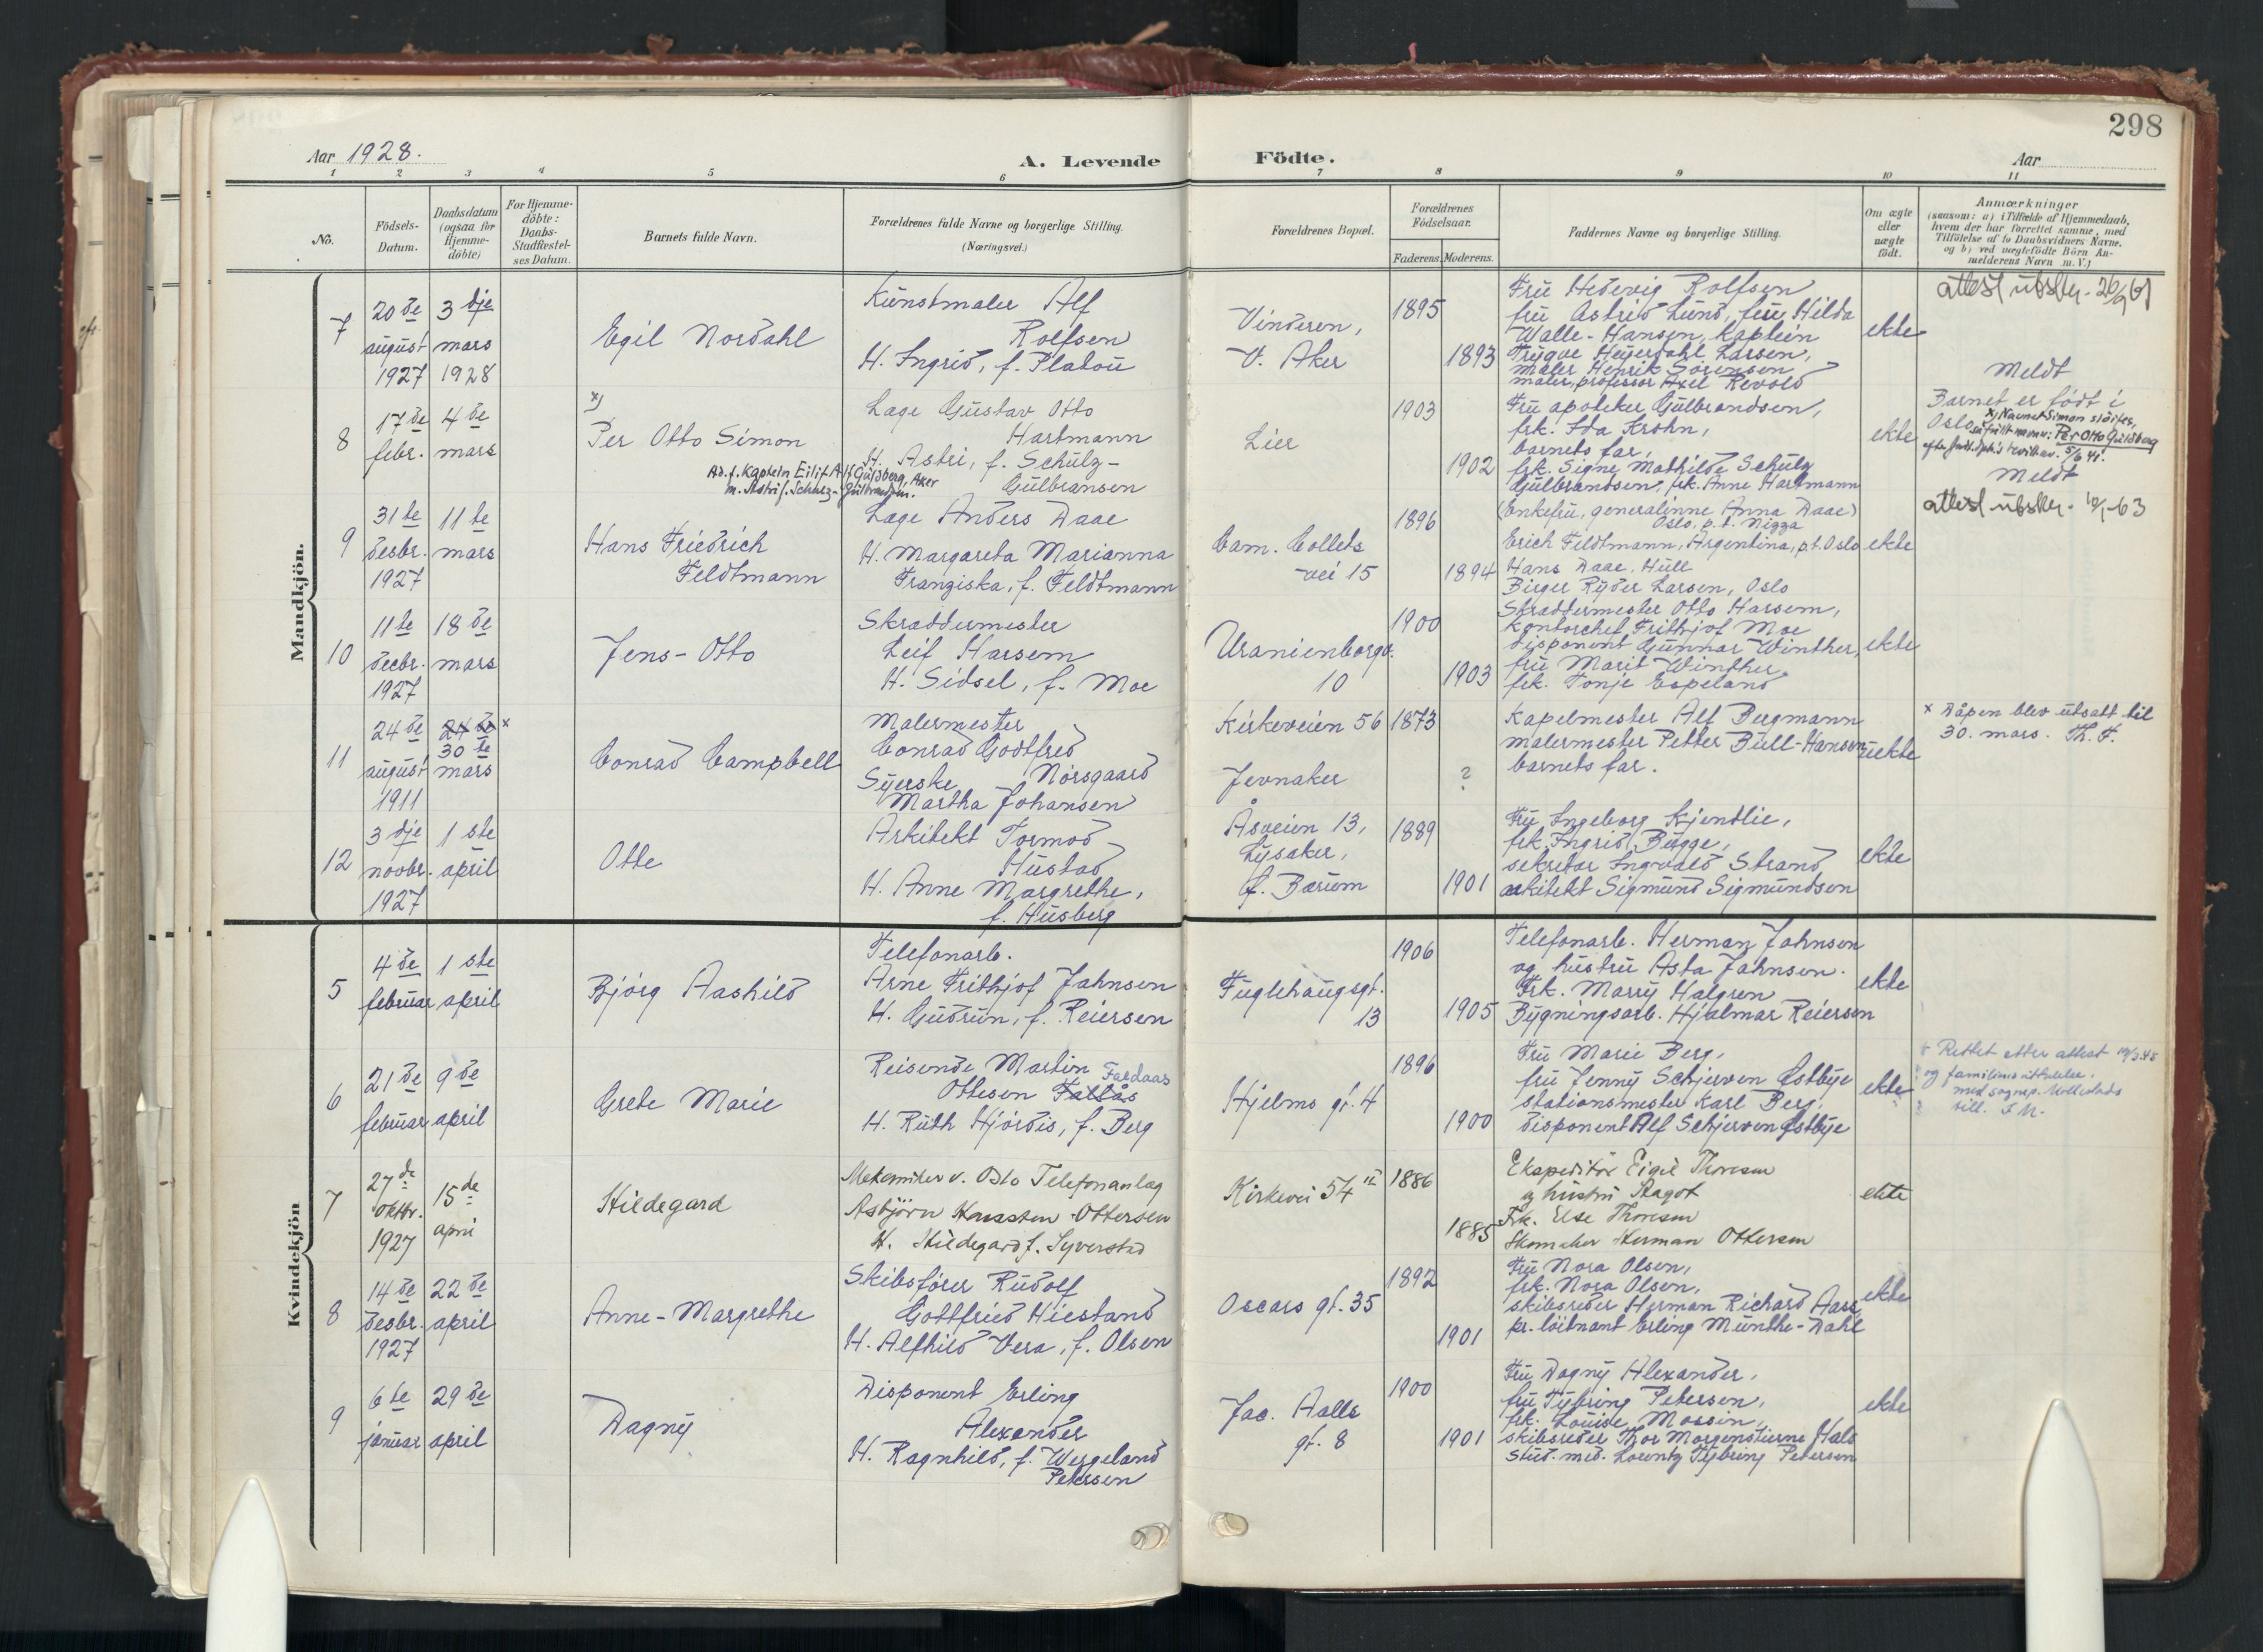 298
Aar 1928.
A. Levende Födte.
Aar
1 2 3 4 5 6 7 8 9 10 11
No.
Födsels-Datum.
Daabsdatum (ogsaa for Hjemme-döbte)
For Hjemme-döbte: Daabs-Stadfæstel-ses Datum.
Barnets fulde Navn.
Forældrenes fulde Navne og borgerlige Stilling.
(Næringsvei.)
Forældrenes Bopæl.
Forældrenes Födselsaar.
Faderens. Moderens.
Faddernes Navne og borgerlige Stilling.
Om ægte eller uægte födt.
Anmærkninger
(saasom: a) i Tilfælde af Hjemmedaab,
hvem der har forrettet samme, med
Tilföielse af to Daabsvidners Navne,
og b) ved uægtefödte Börn An-
melderens Navn m. V.)
Mandkjön.
7
20de august 1927
3dje mars 1928
Egil Nordahl
Kunstmaler Alf
Rolfsen
H. Ingrid, f. Platou
Vinderen,
V. Aker
1895
1893
Fru Hedevig Rolfsen
fru Astrid Lund, fru Hilda
Walle-Hansen, Kaptein
Trygve Heyerdahl Larsen,
maler Henrik Sørensen
maler, professor Axel Revold
ekte
attest utskr. 26/9 61
Meldt
8
17de febr.
4de mars
x)
Per Otto Simon
Ad. f. Kaptein Eilif Alf Guldberg, Aker
m. Astri f. Schulz-Gulbrandsen.
Læge Gustav Otto
Hartmann
H. Astri, f. Schulz-
Gulbransen
Lier
1903
1902
Fru apoteker Gulbrandsen,
frk. Ida Krohn,
barnets far,
frk. Signe Mathilde Schulz
Gulbrandsen, frk. Anne Hartmann
ekte
Barnet er født i
Oslo
x) Navnet Simon sløifes,
Per Otto Guldberg
5/6 41.
Meldt
9
31te desbr. 1927
11te mars
Hans Friedrich
Feldtmann
Læge Anders Daae
H. Margareta Marianna
Franziska, f. Feldtmann
Cam. Collets
vei 15
1896
1894
(Enkefru, generalinne Anna Daae)
Oslo, p.t. Nizza
Erich Feldtmann, Argentina, p.t. Oslo
Hans Daae, Hull
Birger Ryder Larsen, Oslo
ekte
attest utskr. 10/1-63
10
11te decbr. 1927
18de mars
Jens-Otto
Skræddermester
Leif Harsem
H. Sidsel, f. Moe
Uranienborgv.
10
1900
1903
Skræddermester Otto Harsem,
kontorchef Frithjof Moe
disponent Gunnar Winther,
fru Marit Winther,
frk. Tonje Espeland
ekte
11
24de august 1911
24de x
30te mars
Conrad Campbell
Malermester
Conrad Godtfred
Nørsgaard
Syerske
Martha Johansen
Kirkeveien 56
Jevnaker
1873
?
Kapelmester Alf Bergmann
malermester Petter Bull-Hansen
barnets far.
uekte
x Dåpen blev utsatt til
30. mars. Th. F.
12
3dje novbr. 1927
1ste april
Otte
Arkitekt Tormod
Hustad
H. Anne Margrethe,
f. Husberg
Åsveien 13,
Lysaker,
f. Bærum
1889
1901
Fru Ingeborg Kjendlie,
frk. Ingrid Bugge,
sekretær Ingvald Strand,
arkitekt Sigmund Sigmundsen
ekte
Kvindekjön
5
4de februar
1ste april
Bjørg Aashild
Telefonarb.
Arne Frithjof Jahnsen
H. Gudrun, f. Reiersen
Fuglehaugsgt.
13
1906
1905
Telefonarb. Herman Jahnsen
og hustru Asta Jahnsen.
Frk. Marry Halgren
Bygningsarb. Hjalmar Reiersen
ekte
6
21de februar
9de april
Grete Marie
Reisende Martin
Ottesen Fallås Faldaas
H. Ruth Hjørdis, f. Berg
Hjelms gt. 4
1896
1900
Fru Marie Berg,
fru Jenny Schjerven Østbye
stationsmester Karl Berg,
disponent Alf Schjerven Østbye
ekte
x Rettet etter attest
og familiens uttalelse.
7
27de oktbr. 1927
15de april
Hildegard
Mekaniker v. Oslo Telefonanlæg
Asbjörn Ottersen
H. Hildegard f. Syverstad
Kirkevei 54 II
1886
1885
Ekspeditør Eigil Thoresen
og hustru Ragot
Frk. Else Thoresen
Skomaker Herman Ottersen
ekte
8
14de desbr. 1927
22de april
Anne-Margrethe
Skibsfører Rudolf
Gottfried Hiestand
H. Alfhild Vera, f. Olsen
Oscars gt. 35
1892
1901
Fru Nora Olsen,
frk. Nora Olsen,
skibsreder Herman Richard Aass,
pr. löitnant Erling Munthe-Dahl
ekte
9
6te januar
29de april
Dagny
Disponent Erling
Alexander
H. Ragnhild, f. Wergeland
Petersen
Jac. Aalls
gt. 8
1900
1901
Fru Dagny Alexander,
fru Tybring Petersen,
frk. Louise Massin,
skibsreder Thor Morgenstierne Hals
stud. med. Lorentz Tybring Petersen
ekte